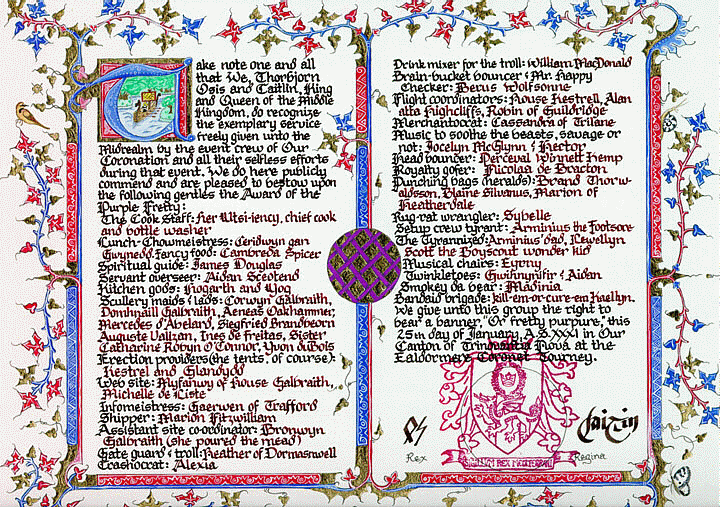 Take note one and all
that We, Thorbjorn
Osis and Caitlin, King
and Queen of the Middle
Kingdom, do recognize
the exemplary service
freely given unto the
Midrealm by the event crew of Our
Coronation and all their selfless efforts
during that event. We do here publicly
commend and are pleased to bestow upon
the following gentles the Award of the
Purple Fretty:
The Cook Staff: Her Utsi-iency, chief cook
and bottle washer
Lunch-Chowmeistress: Ceridwyn gan
Gwynedd Fancy food: Cambreda Spicer
Spiritual guide: James Douglas
Servant overseer: Aidan Sceotend
Kitchen gods: Hogarth and Yog
Scullery maids & lads: Corwyn Galbraith,
Domhnaill Galbraith, Aeneas Oakhammer,
Mercedes d'Abelard, Siegfried Brandbeorn
Auguste Valizan, Ines de Freitas, Sister
Catharine, Robyn O'Connor, Yvon dubois
Erection providers (the tents, of course):
Kestrel and Glandydd
Web site: Myfanwy of House Galbraith,
Michelle de Liste
Infomeistress: Gaerwen of Trafford
Shipper: Marion Fitzwilliam
Assistant site co-ordinator: Bronwyn
Galbraith (she poured the mead)
Gate guard & troll: Heather of Dormanswell
Crashocrat: Alexia
Drink mixer for the troll: William MacDonald
Brain-bucket bouncer & Mr. Happy
Checker: Berus Wolfsonne
Flight coordinators: House Kestrell, Alan
atta Highcliffs, Robin of Guildbridge
Merchantocrat: Cassandra of Trillane
Music to soothe the beasts, savage or
not: Jocelyn McGlynn & Hector
Head bouncer: Perceval Winnett Kemp
Royalty gofer: Nicolaa de Bracton
Punching bags (heralds): Brand Thorw-
aldsson, Blaine Silvanus, Marion of
Heatherdale
Rug-rat wrangler: Sybelle
Setup crew tyrant: Arminius the Footsore
The Tyrannized: Arminius' dad, Lewellyn
Scott the Boyscout wonder kid
Musical chairs: Eyrny
Twinkletoes: Gwihnyfir & Aidan
Smokey da bear: Madinia
Bandaid brigade: kill-em-or-cure-em Kaellyn.
We give unto this group the right to
bear a banner, "Or fretty purpure," this
25th day of January, A.S. XXXI in Our
Canton of Trinovantia Nova at the
Ealdormere Coronet Tourney.
Rex
Caitlin
Regina